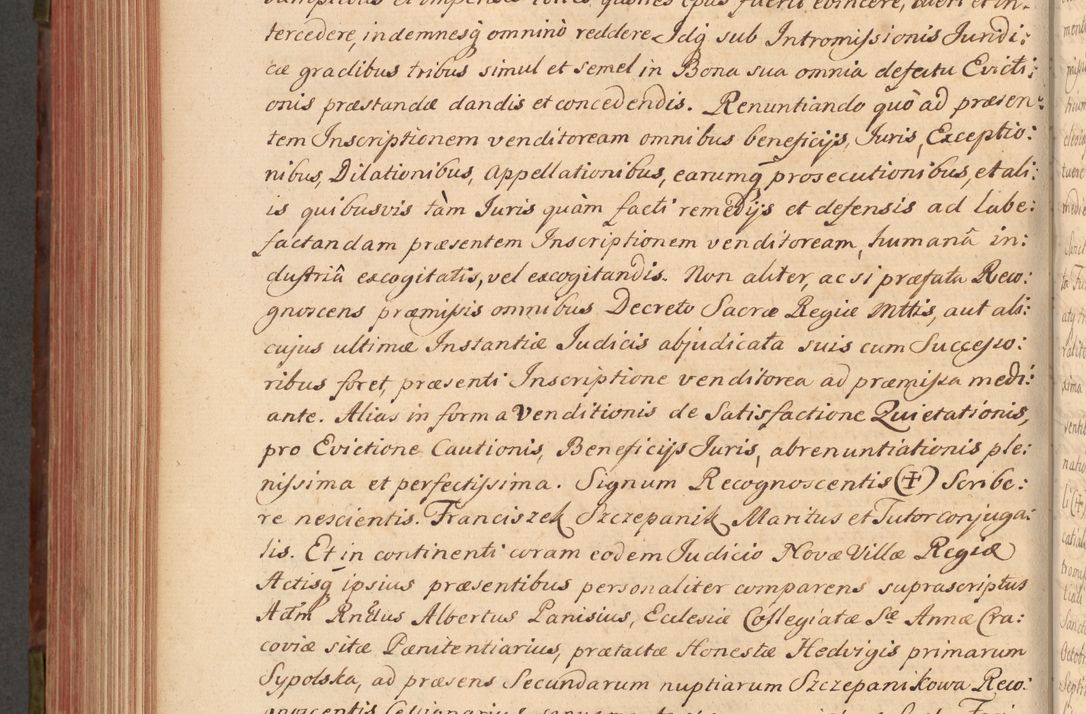 tercedere, indemnesq́ omninò reddere. Idq́ sub Intromissionis Juridi:
cæ gradibus tribus simul et semel in Bona sua omnia defectu Evicti:
onis præstandæ dandis et concedendis. Renuntiando quò ad præsen:
tem Inscriptionem venditoream omnibus beneficijs, Juris, Exceptio:
nibus, Dilationibus, Appellationibus, earumq́ prosecutionibus, et ali:
is quibusvis tàm Juris quàm facti remedijs et defensis ad labe:
factandam præsentem Inscriptionem venditoream, humanâ in:
dustriâ excogitatis, vel excogitandis. Non aliter, ac si præfata Reco:
gnoscens præmissis omnibus Decreto Sacræ Regiæ Mttis, aut ali:
cujus ultimæ Instantiæ Judicis abjudicata suis cum Successo:
ribus foret, præsenti Inscriptione venditorea ad præmissa medi:
ante. Alias in forma Venditionis de Satisfactione Quietationis,
pro Evictione Cautionis, Beneficijs Juris, abrenuntiationis ple:
nissima et perfectissima. Signum Recognoscentis (+) Scribe:
re nescientis. Franciszek Szczepanik Maritus et Tutor conjuga:
lis. Et in continenti coram eodem Judicio Novæ Villæ Regiæ
Actisq́ ipsius præsentibus personaliter comparens suprascriptus
Adm Rndus Albertus Panisius, Ecclesiæ Collegiatæ Sæ Annæ Cra:
coviæ sitæ Pænitentiarius, prætactæ Honestæ Hedvigis primarum
Sypolska, ad præsens Secundarum nuptiarum Szczepanikowa Reco: